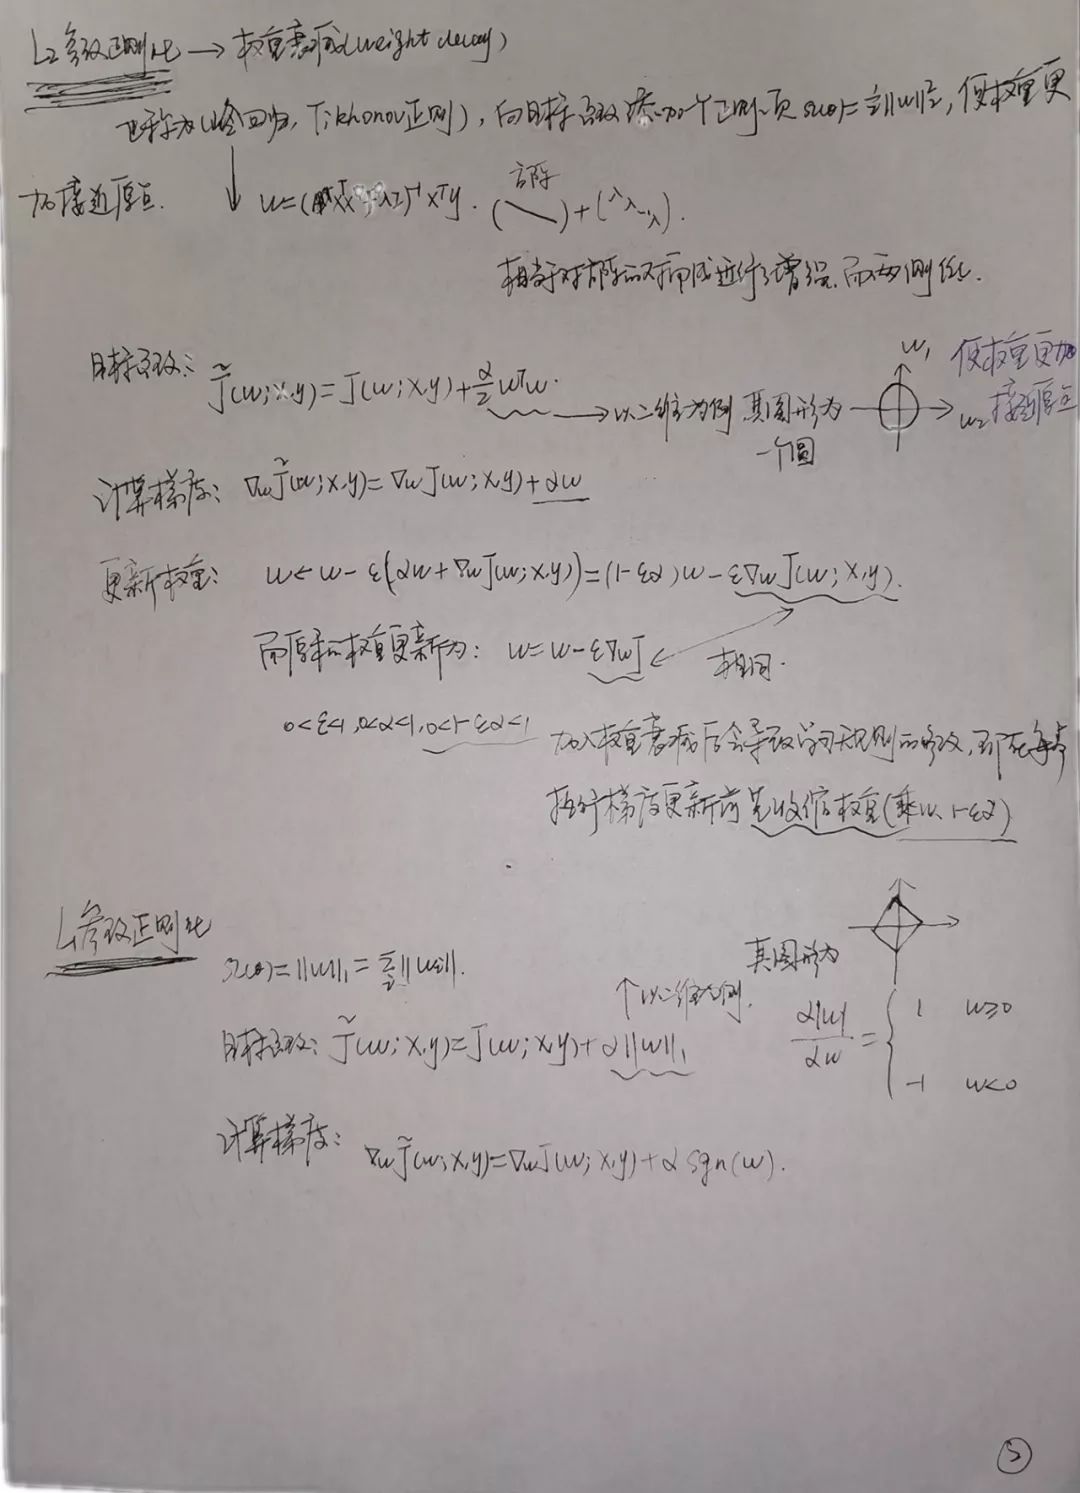 L₂参数正则化 → 权重衰减(weight decay)
也称为(岭回归, Tikhonov正则), 向目标函数添加一个正则项 Ω(θ)=½||w||₂², 使权重更
加接近原点.
w=(XᵀX+λI)⁻¹Xᵀy.
方阵
( \ )+(λ λ -λ).
相当于对方阵的对角线进行了增强, 而两侧
目标函数:
J̃(w;X,y)=J(w;X,y)+α/2 wᵀw.
→以二维为例 其图形为
一个圆
w₁
w₂
使权重更加
接近原点
计算梯度: ∇wJ̃(w;X,y)=∇wJ(w;X,y)+αw
更新权重: w←w-ε(αw+∇wJ(w;X,y))=(1-εα)w-ε∇wJ(w;X,y).
而原来的权重更新为: w=w-ε∇wJ
相同.
0<ε<1,0<α<1,0<1-εα<1
加入权重衰减后会导致学习规则的修改,即在每步
执行梯度更新前先收缩权重(乘以 1-εα)
L₁参数正则化
Ω(θ)=||w||₁=Σi||wi||.
其图形为
↑以二维为例.
目标函数: J̃(w;X,y)=J(w;X,y)+α||w||₁
α|w|/αw={ 1 w≥0
-1 w<0
计算梯度:
∇wJ̃(w;X,y)=∇wJ(w;X,y)+α sgn(w).
②